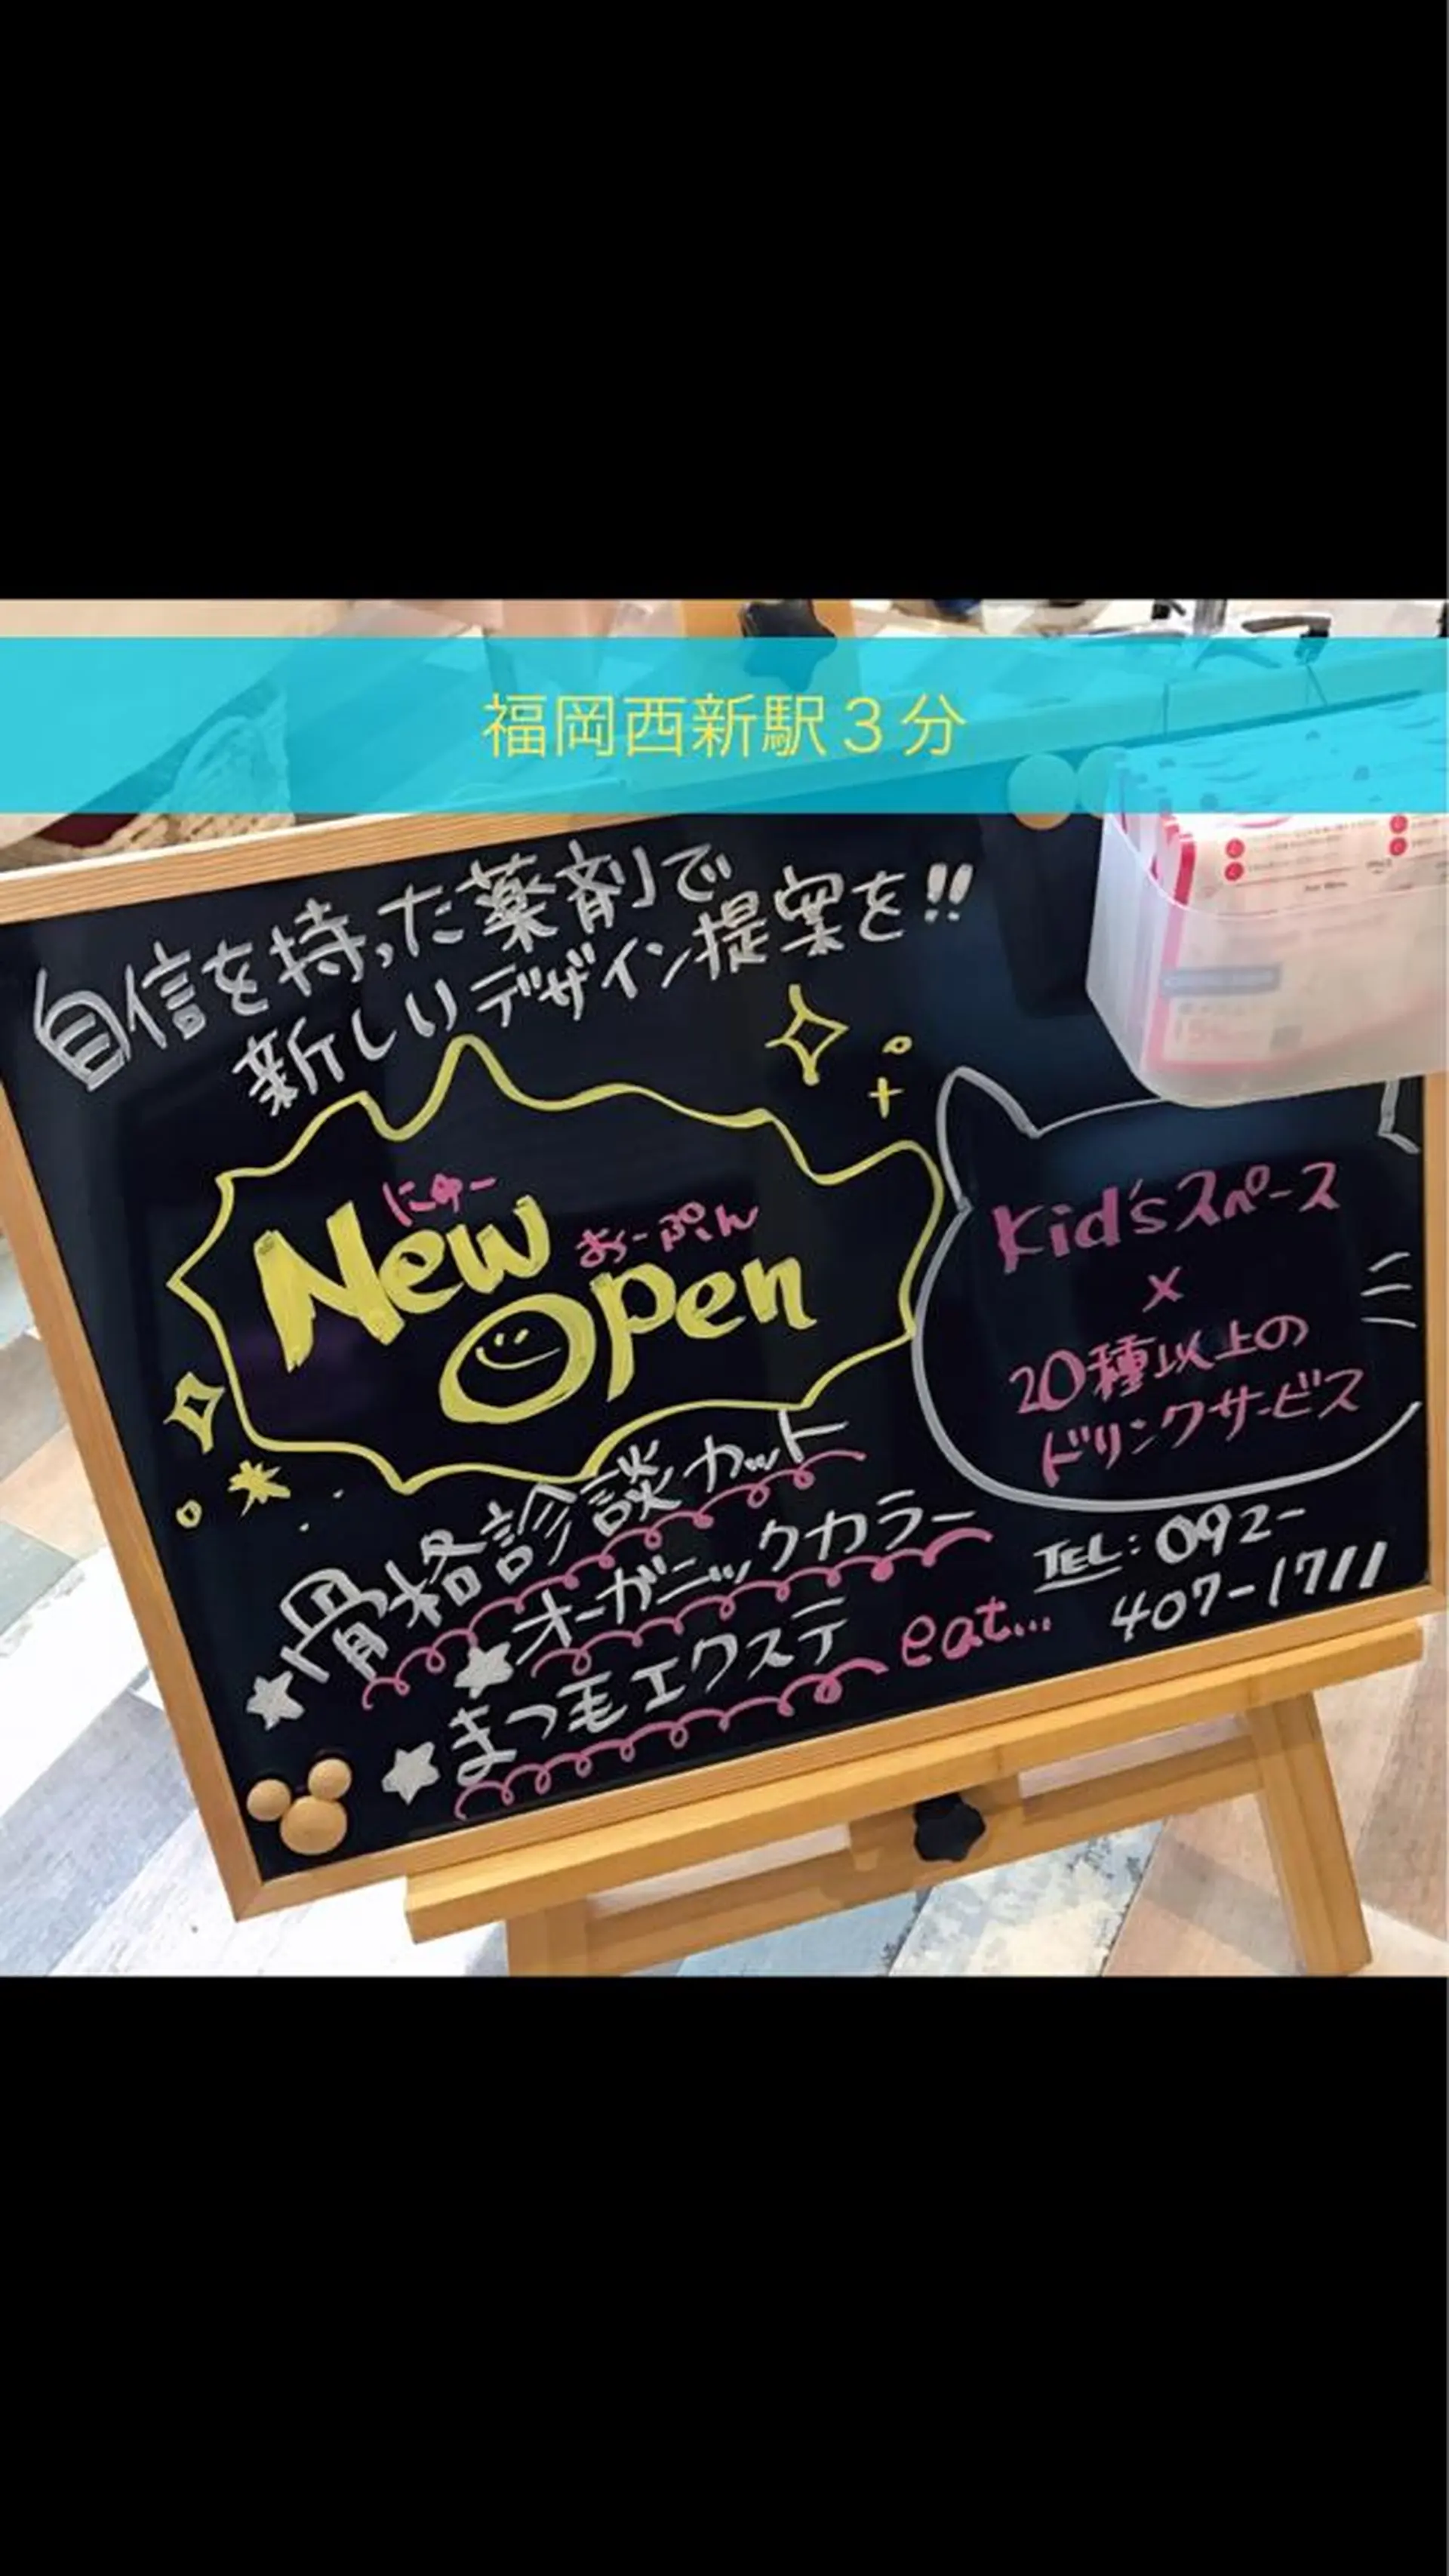 福岡西新駅3分
自信を持った薬剤で
新しいデザイン提案を!!
にゅー
New
おーぷん
Open
Kid'sスペース
×
20種以上の
ドリンクサービス
★骨格診談カット
★オーガニックカラー
★まつ毛エクステ eat...
TEL: 092-
407-1711